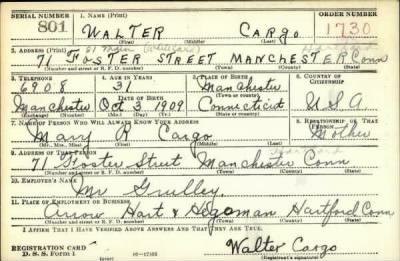 SERIAL NUMBER 1. NAME (Print) ORDER NUMBER
801 WALTER CARGO 1730
(First) (Middle) (Last)
2. ADDRESS (Print) 81 Main
71 FOSTER STREET MANCHESTER Conn
(Number and street or R. F. D. number) (Town) (County) (State)
3. TELEPHONE 4. AGE IN YEARS 5. PLACE OF BIRTH 6. COUNTRY OF CITIZENSHIP
6908 31 Manchester
DATE OF BIRTH (Town or county)
Manchester Oct 3 1909 Connecticut U.S.A.
(Exchange) (Mo.) (Day) (Yr.) (State or country)
7. NAME OF PERSON WHO WILL ALWAYS KNOW YOUR ADDRESS 8. RELATIONSHIP OF THAT PERSON
Mary R Cargo Mother
(Mr., Mrs., Miss) (First) (Middle) (Last)
9. ADDRESS OF THAT PERSON
71 Foster Street Manchester Conn
(Number and street or R. F. D. number) (Town) (County) (State)
10. EMPLOYER'S NAME
Mr
11. PLACE OF EMPLOYMENT OR BUSINESS
Arrow Hart & Hegeman Hartford Conn
(Number and street or R. F. D. number) (Town) (County) (State)
I AFFIRM THAT I HAVE VERIFIED ABOVE ANSWERS AND THAT THEY ARE TRUE.
REGISTRATION CARD
D. S. S. Form 1 16-17105 Walter Cargo
(Registrant's signature)